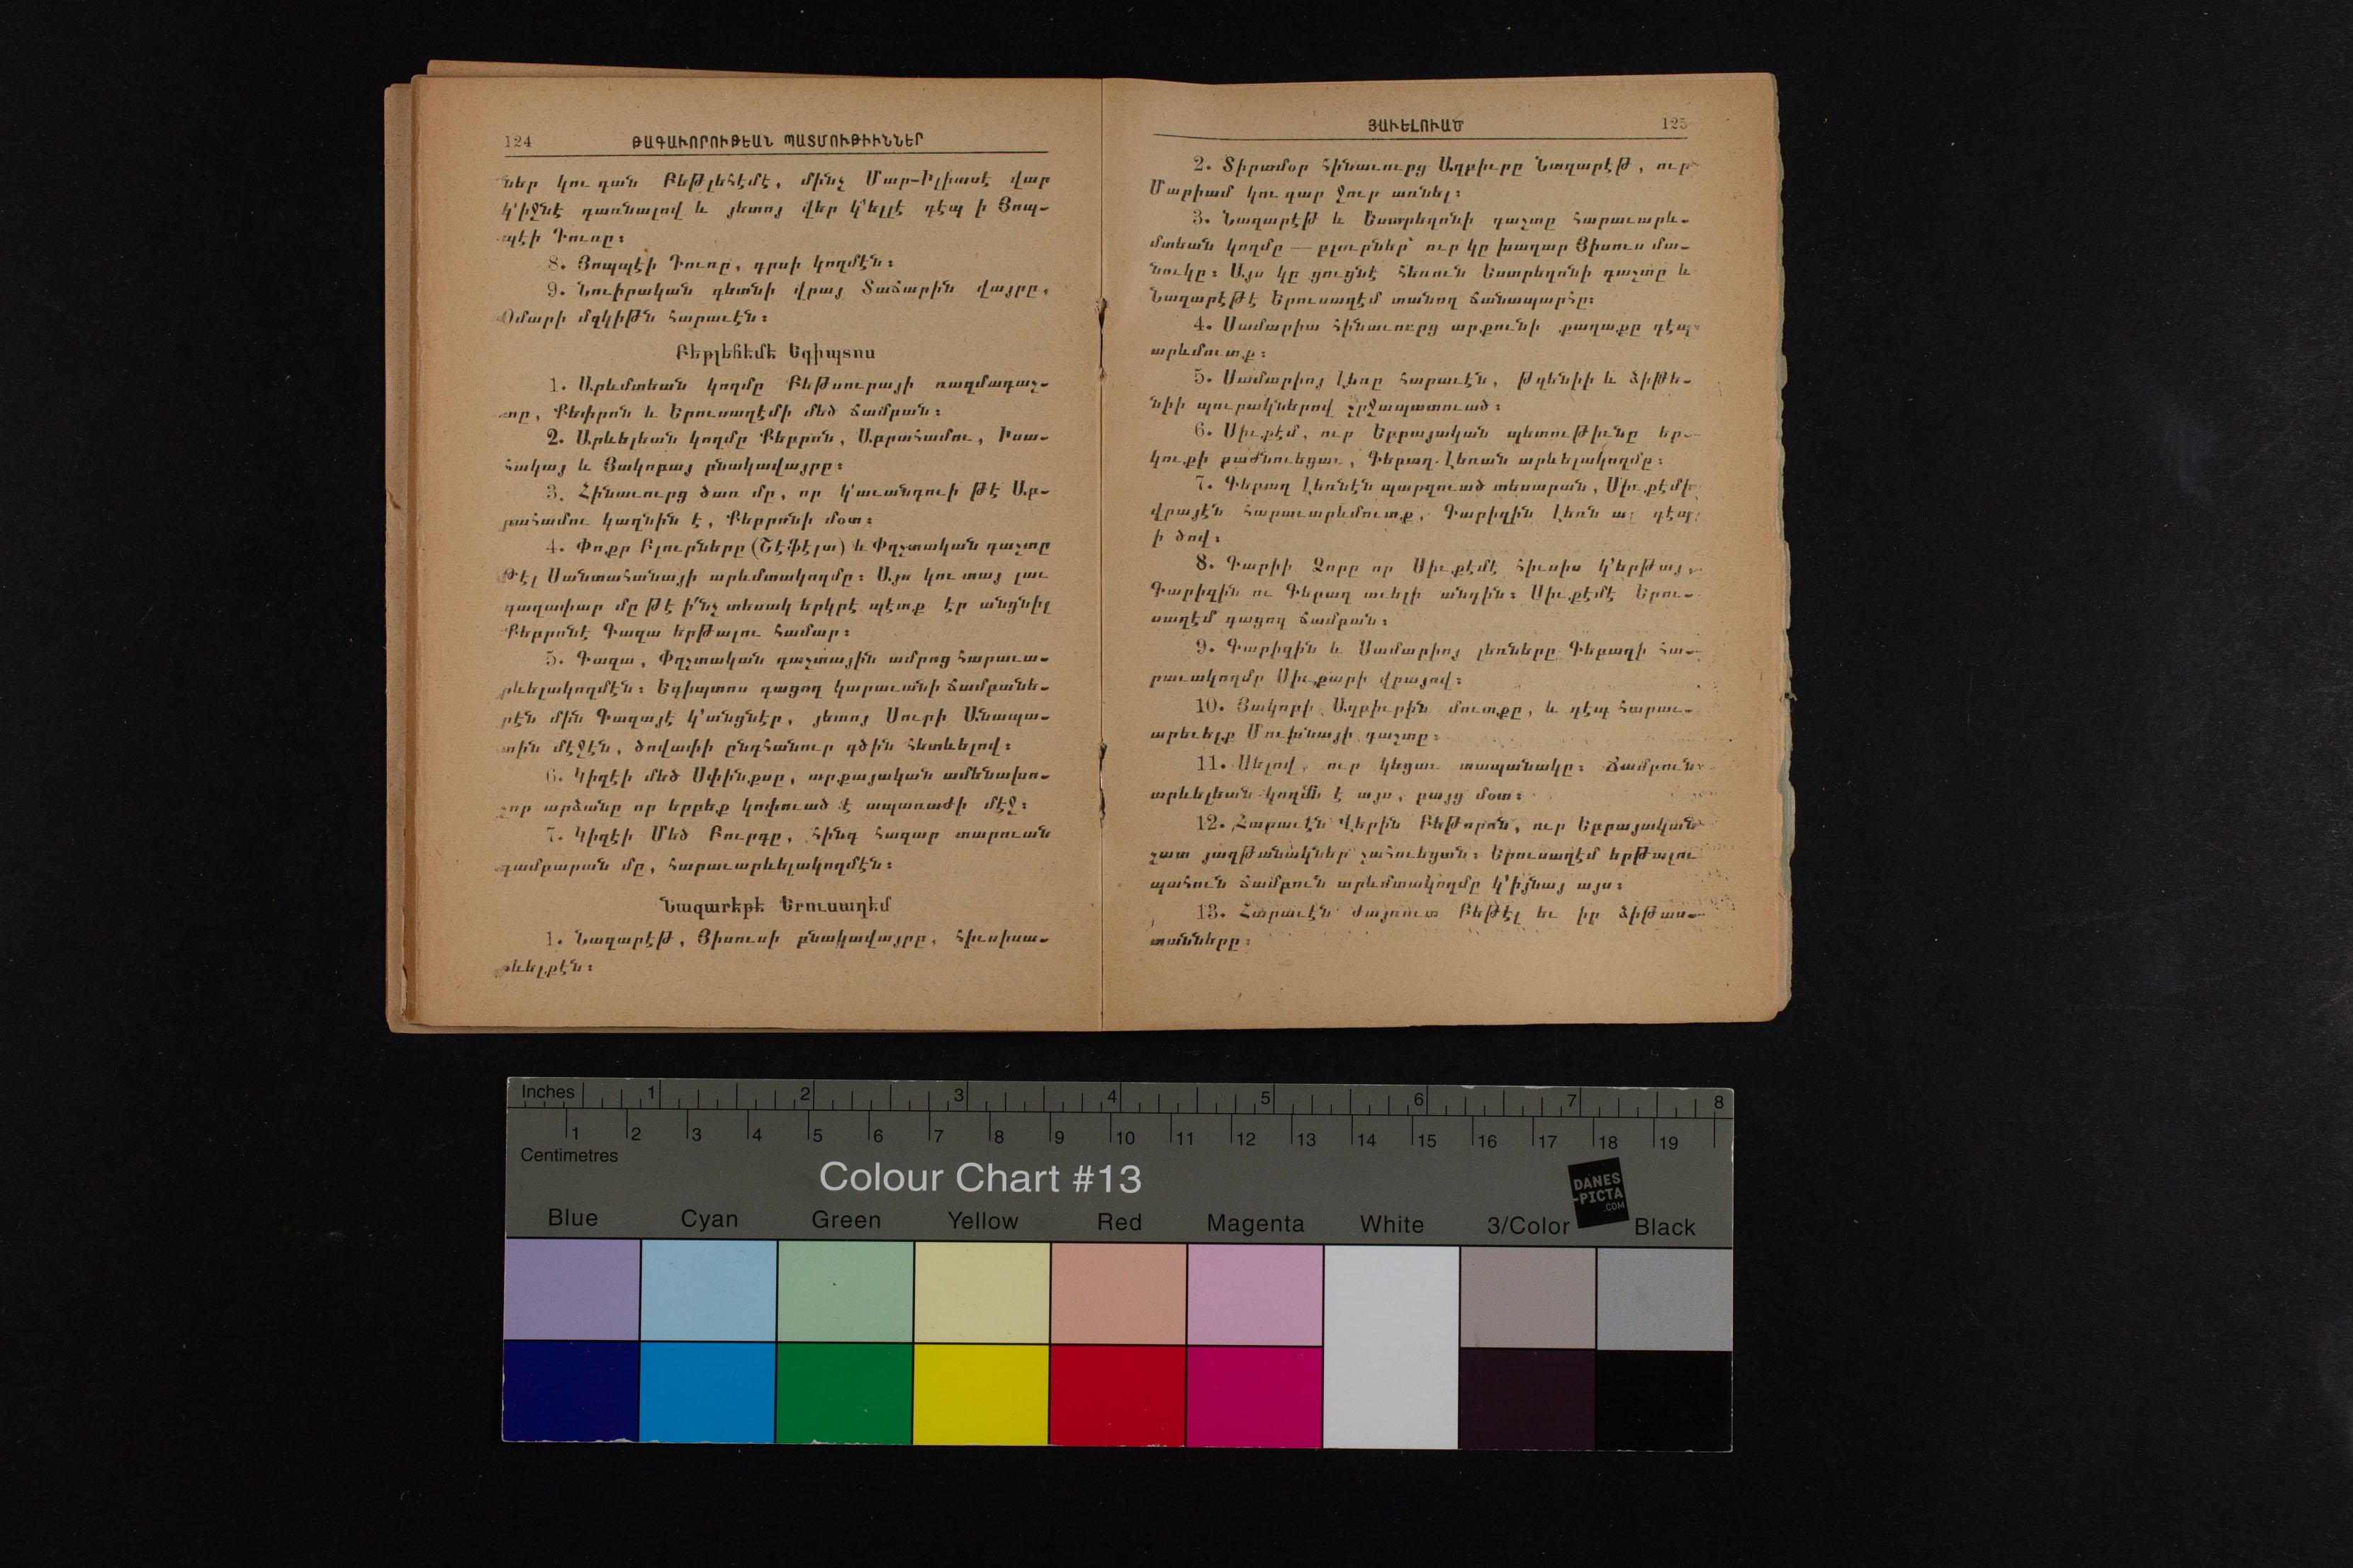 124 ԹԱԳԱՒՈՐՈՒԹԵԱՆ ՊԱՏՄՈՒԹԻՒՆՆԵՐ
ներ կու գան Բեթլեհէմէ, մինչ Մար-Իլիասէ վար
կ՚իջնէ դառնալով և յետոյ վեր կ՚ելլէ դէպ ի Յոպ-
պէի Դուռը։
8. Յոպպէի Դուռը, դրսի կողմէն։
9. Նուիրական գետնի վրայ Տաճարին վայրը,
Օմարի մզկիթն հարաւէն։
Բեթլեհեմե Եգիպտոս
1. Արևմտեան կողմը Բեթսուրայի ռազմադաշ-
տը, Քեփրոն և Երուսաղէմի մեծ ճամբան։
2. Արևելեան կողմը Քեբրոն, Աբրահամու, Իսա-
հակայ և Յակոբայ բնակավայրը։
3. Հինաւուրց ծառ մը, որ կ՚աւանդուի թէ Աբ-
րահամու կաղնին է, Քեբրոնի մօտ։
4. Փոքր Բլուրները (Շէֆէլա) և Փղշտական դաշտը
Թէլ Սանտահանայի արևմտակողմը։ Այս կու տայ լաւ
գաղափար մը թէ ի՛նչ տեսակ երկրէ պէտք էր անցնիլ
Քեբրոնէ Գազա երթալու համար։
5. Գազա, Փղշտական դաշտային ամրոց հարաւա-
րևելակողմէն։ Եգիպտոս գացող կարաւանի ճամբանե-
րէն մին Գազայէ կ՚անցնէր, յետոյ Սուրի Անապա-
տին մէջէն, ծովափի ընդհանուր գծին հետևելով։
6. Կիզէի մեծ Սփինքսը, արքայական ամենախո-
շոր արձանը որ երբեք կոփուած է ապառաժի մէջ։
7. Կիզէի Մեծ Բուրգը, հինգ հազար տարուան
դամբարան մը, հարաւարևելակողմէն։
Նազարեթե Երուսաղեմ
1. Նազարէթ, Յիսուսի բնակավայրը, հիւսիսա-
րևելքէն։
ՅԱՒԵԼՈՒԱԾ 125
2. Տիրամօր հինաւուրց Աղբիւրը Նազարէթ, ուր
Մարիամ կու գար ջուր առնել։
3. Նազարէթ և Եսարեղոնի դաշտը հարաւարև-
մտեան կողմը — բլուրներ՝ ուր կը խաղար Յիսուս մա-
նուկը։ Այս կը ցուցնէ հեռուն Եստրեղոնի դաշտը և
Նազարէթէ Երուսաղէմ տանող ճանապարհը։
4. Սամարիա հինաւուրց արքունի քաղաքը դէպ
արևմուտք։
5. Սամարիոյ լեռը հարաւէն, թզենիի և ձիթե-
նիի պուրակներով շրջապատուած։
6. Սիւքէմ, ուր Եբրայական պետութիւնը եր-
կուքի բաժնուեցաւ, Գեբաղ լեռան արևելակողմը։
7. Գեբաղ լեռնէն պարզուած տեսարան, Սիւքէմի
վրայէն հարաւարևմուտք, Գարիզին լեռն ալ դէպ
ի ծով։
8. Գարիի Ձորը որ Սիւքէմէ հիւսիս կ՚երթայ,
Գարիզին ու Գեբաղ աւելի անդին։ Սիւքէմէ Երու-
սաղէմ գացող ճամբան։
9. Գարիզին և Սամարիոյ լեռները Գեբաղի հա-
րաւակողմը Սիւքարի վրայով։
10. Յակոբի Աղբիւրին մուտքը, և դէպ հարաւ-
արեւելք Մուխնայի դաշտը։
11. Սելով, ուր կեցաւ տապանակը։ Ճամբուն
արևելեան կողմն է այս, բայց մօտ։
12. Հարաւէն Վերին Բեթորոն, ուր Եբրայական
շատ յաղթանակներ շահուեցան։ Երուսաղէմ երթալու
պահուն ճամբուն արևմտակողմը կ՚իյնայ այս։
13. Հարաւէն ժայռուտ Բեթէլ եւ իր ձիթաս-
տանները։
Inches 1 2 3 4 5 6 7 8
1 2 3 4 5 6 7 8 9 10 11 12 13 14 15 16 17 18 19
Centimetres
Colour Chart #13
DANES
-PICTA
.COM
Blue Cyan Green Yellow Red Magenta White 3/Color Black